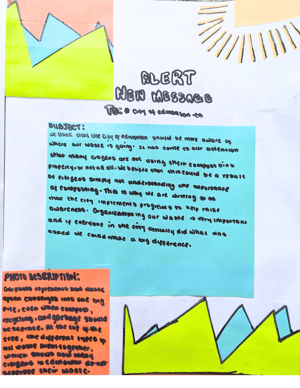 ALERT
NEW MESSAGE
TO: @ City of edmonton .ca
SUBJECT:
We think that the City of edmonton should be more aware of
where our waste is going. It has come to our attention
that many citizens are not using their compost bins
properly or not at all. We believe that this could be a result
of citizens simply not understanding the importance
of composting. That is why we are writing to
have the city implement programs to help raise
awareness. Organization in our waste is very important
and if everyone in the city actually did what was
asked we could make a big difference.
PHOTO DESCRIPTION:
Our photo represents how waste
often converges into one big
pile, even when compost,
recycling, and garbage should
be separate. At the top of the
tree, the different types of
waste together,
which shows how many
citizens in Edmonton do not
separate their waste.